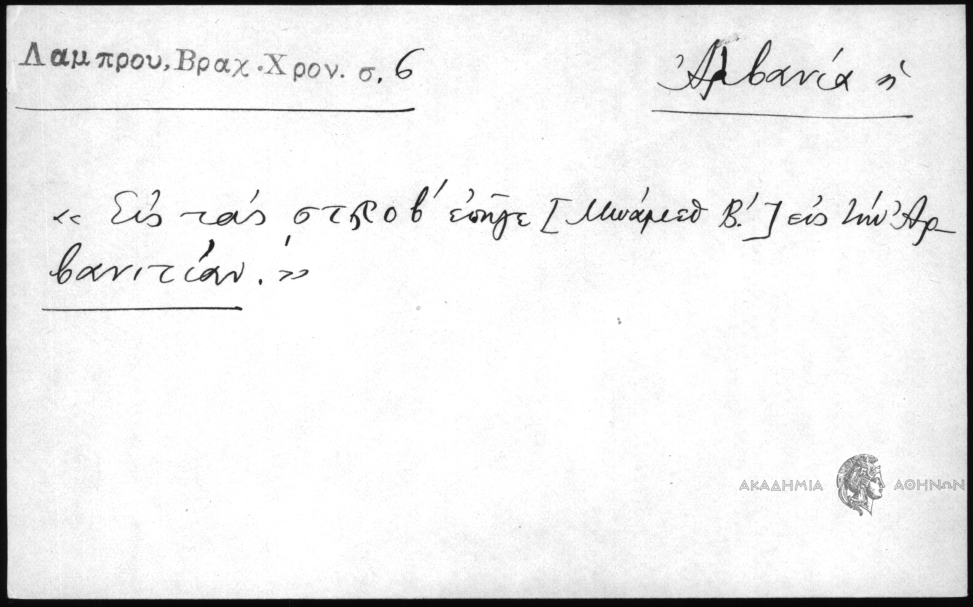 Λαμπρου, Βραχ. Χρον. σ. 6
Ἀλβανία ἡ
«Εἰς τὰς ͵ϛπϟοβ´ ἐπῆγε [Μωάμεθ Β´.] εἰς τὴν Ἀρ-
βανιτίαν.»
ΑΚΑΔΗΜΙΑ ΑΘΗΝΩΝ